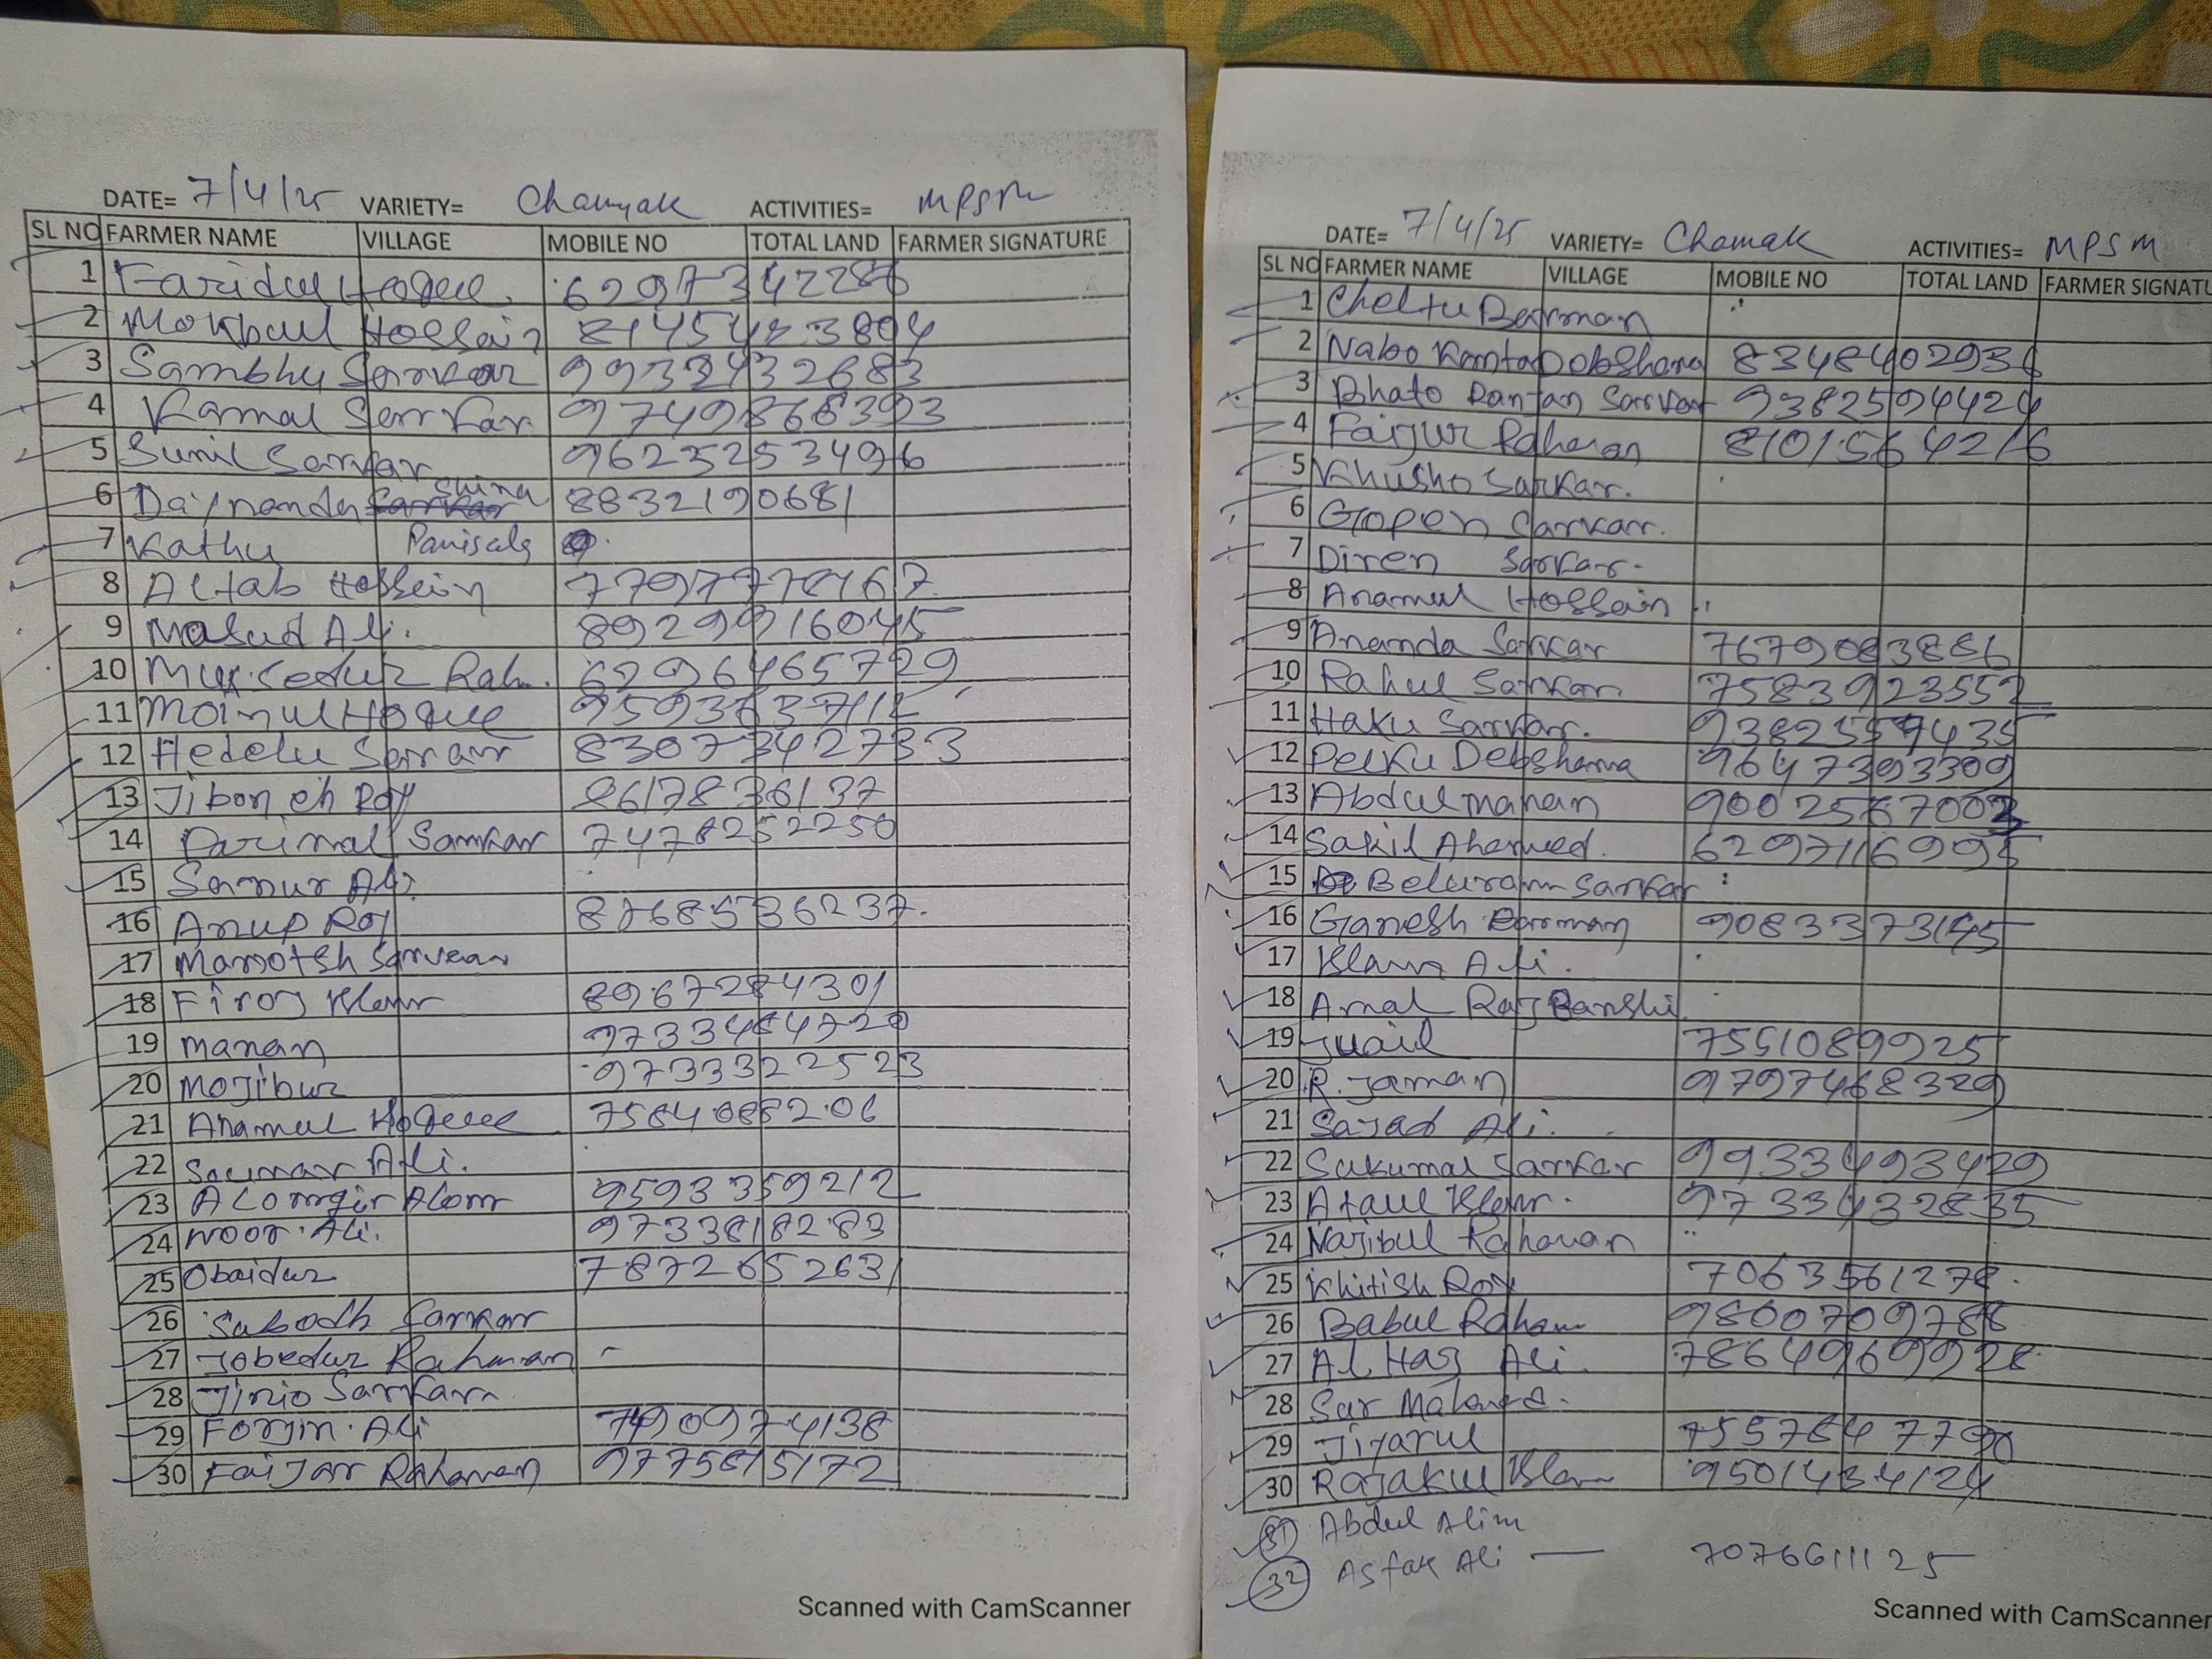 DATE= 7/4/25 VARIETY= Chamak ACTIVITIES= MPSM
SL NO FARMER NAME VILLAGE MOBILE NO TOTAL LAND FARMER SIGNATURE
1 Faridul Hoque 6297342286
2 Mokbul Hossain 8145423804
3 Sambhu Sarkar 9933432683
4 Kamal Sarkar 9749868393
5 Sunil Sarkar 9623253496
6 Daynanda Shina 8832190681
7 Kathu Panisala
8 Altab Hossein 7797778467
9 Masud Ali. 8929916045
10 Mursedur Rah. 6296465729
11 Moinul Hoque 9593637112
12 Hedelu Sarkar 8307342733
13 Jibon ch Roy 8617836137
14 Parimal Sarkar 7478252250
15 Sanur Ali
16 Anup Roy 8768536237.
17 Sarkar
18 Firoj Islam 8967284301
19 Manan 9733484720
20 Mojibur 9733322523
21 Anamul Hoque 7584088206
22 Soumar Ali.
23 Alomgir Alom 9593359212
24 Noor Ali. 9733818283
25 Obaidur 7872652631
26 Subodh Sarkar
27 Jobedur Rahman -
28 Sarkar
29 Forjin Ali 7490974138
30 Faijar Rahaman 9775815172
Scanned with CamScanner
DATE= 7/4/25 VARIETY= Chamak ACTIVITIES= MPSM
SL NO FARMER NAME VILLAGE MOBILE NO TOTAL LAND FARMER SIGNATU
1 Cheltu Barman
2 Nabo Kanta Debsharma 8348402936
3 Bhato Ranjan Sarkar 9382594424
4 Faijur Rahaman 8101564216
5 Khusho Sarkar.
6 Gopen Sarkar.
7 Diren Sarkar.
8 Anamul Hossain
9 Ananda Sarkar 7679083886
10 Rahul Sarkar 7583923552
11 Haku Sarkar. 9382557435
12 Pelku Debsharma 9647393309
13 Abdul manan 9002567003
14 Sakil Ahamed. 6297116995
15 Beluram Sarkar
16 Ganesh Barman 9083373145
17 Islam Ali.
18 Amal Raj Banshi
19 Juail 7551089925
20 R. Jaman 9797468329
21 Sajad Ali.
22 Sukumal Sarkar 9933493429
23 Ataul Islam. 9733432835
24 Najibul Rahaman
25 Khitish Roy 7063561278
26 Babul Raham 9800709788
27 Al Haj Ali. 7864969928
28 Sar
29 Jiyarul 7557847790
30 Rajakul Islam 9501434124
31 Abdul Alim
32 Asfak Ali — 7076611125
Scanned with CamScanner